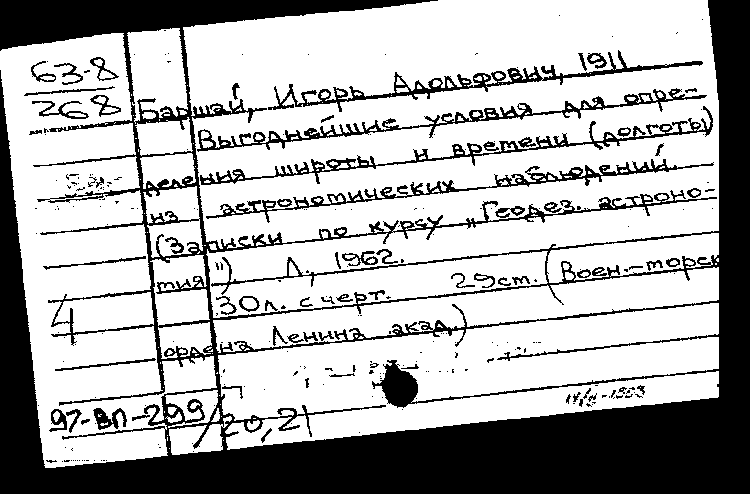 63-8
268
Баршай, Игорь Адольфович, 1911
Выгоднейшие условия для опре-
деления широты и времени (долготы)
из астрономических наблюдений.
(Записки по курсу „Геодез. астроно-
мия") Л., 1962.
30л. с черт. 29см. (Воен.-морск
ордена Ленина акад.)
4
97-ВП-299/20,21